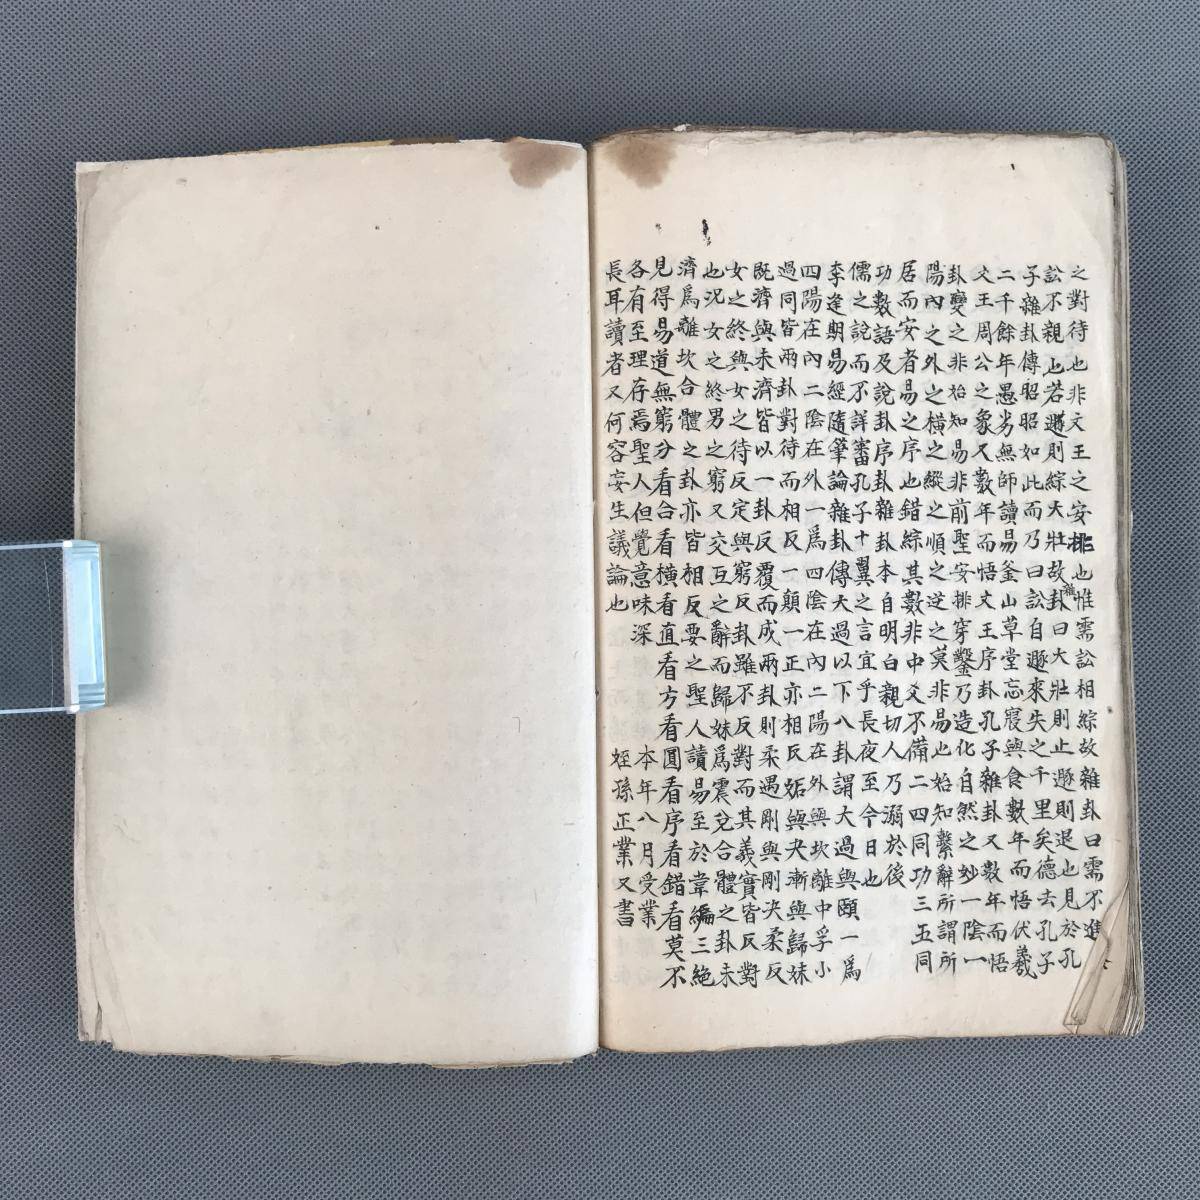 之對待也非文王之安排也惟需訟相綜故雜卦曰需不進
訟不親也若遯則綜大壯故雜卦曰大壯則止遯則退也見於孔
子雜卦傳昭昭如此而乃曰訟自遯來失之千里矣德去孔子
二千餘年愚劣無師讀易釜山草堂忘寢與食數年而悟伏羲
文王周公之象又數年而悟文王序卦孔子雜卦又數年而悟
卦變之非始知易非前聖安排穿鑿乃造化自然之妙一陰一
陽內之外之橫之縱之順之逆之莫非易也始知繫辭所謂所
居而安者易之序也錯綜其數非中爻不備二四同功三五同
功數語及說卦序卦雜卦本自明白親切人乃溺於後
儒之說而不詳審孔子十翼之言宜乎長夜至今日也
李逢期易經隨筆論雜卦傳大過以下八卦謂大過與頤一為
四陽在內二陰在外一為四陰在內二陽在外與坎離中孚小
過同皆兩卦對待而相反一顛一正亦相反姤與夬漸與歸妹
既濟與未濟皆以一卦反覆而成兩卦則柔遇剛與剛決柔反
女之終與女之待反定與窮反卦雖不反對而其義實皆反對
也況女之終男之窮又交互之辭而歸妹為震兌合體之卦未
濟為離坎合體之卦亦皆相反要之聖人讀易至於韋編三絕
見得易道無窮分看合看橫看直看方看圓看序看錯看莫不
各有至理存焉聖人但覺意味深
長耳讀者又何容妄生議論也
本年八月受業
姪孫正業又書